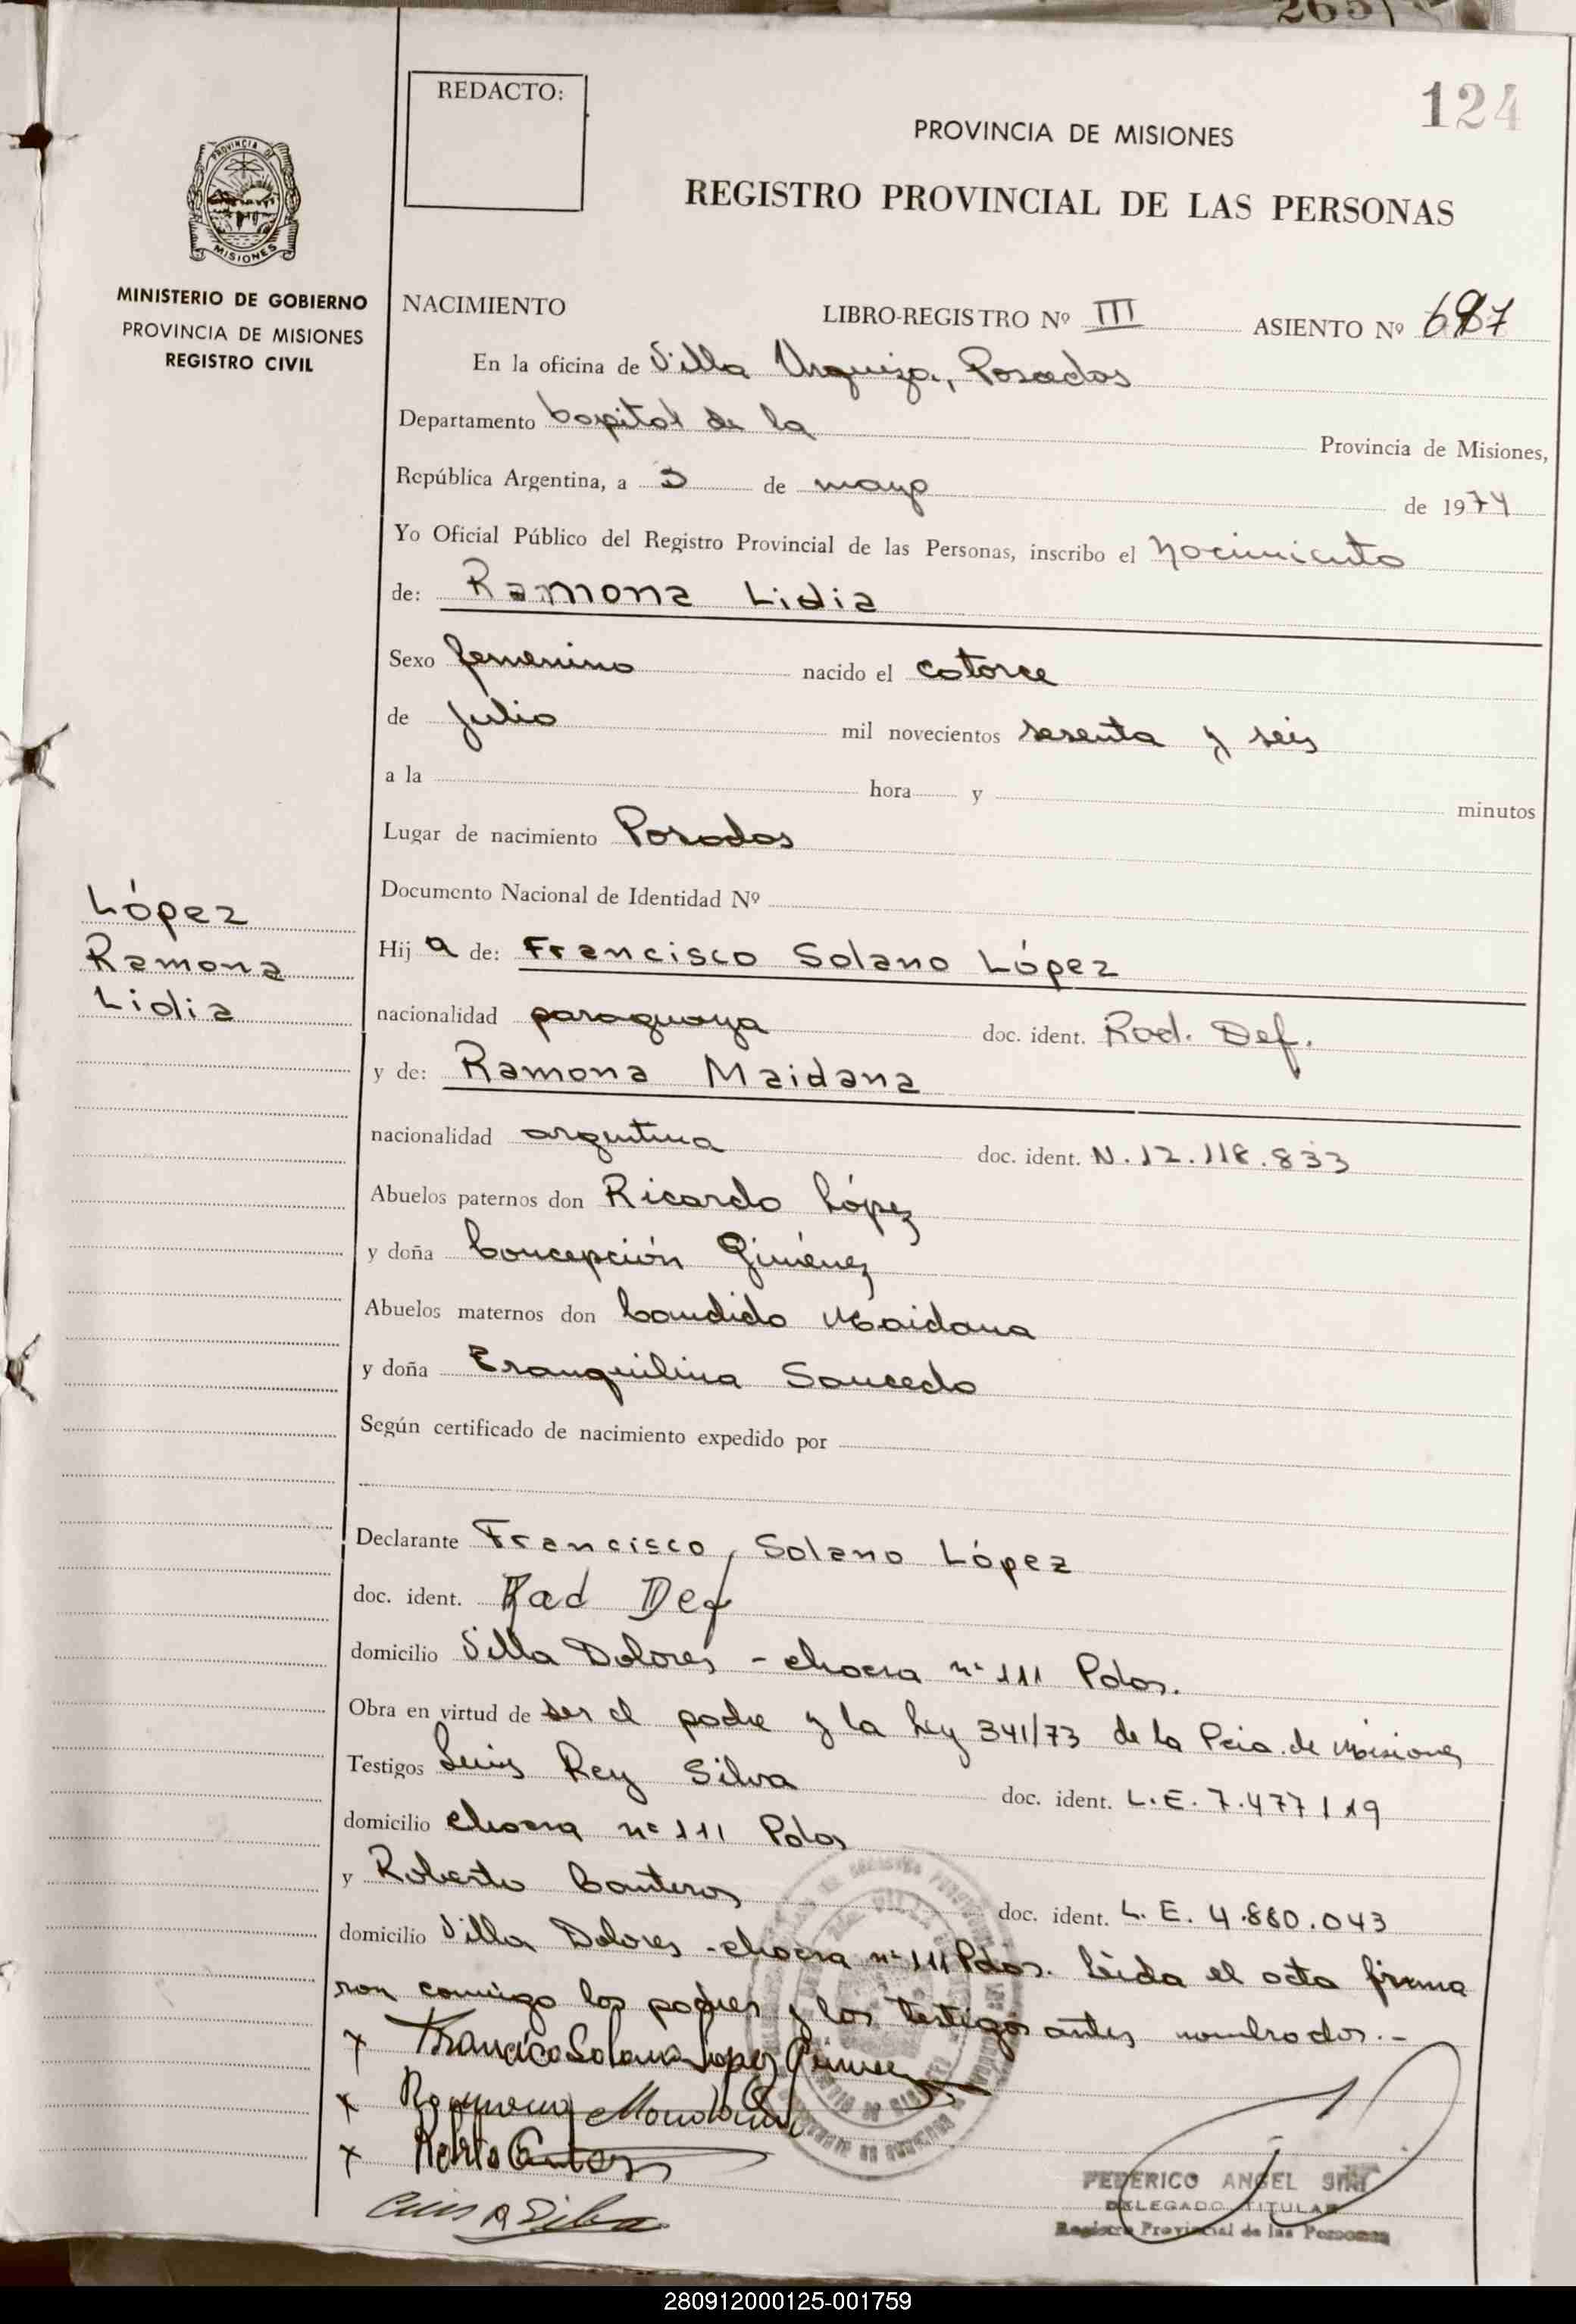 REDACTO:
124
PROVINCIA DE MISIONES
REGISTRO PROVINCIAL DE LAS PERSONAS
PROVINCIA DE
MISIONES
MINISTERIO DE GOBIERNO
PROVINCIA DE MISIONES
REGISTRO CIVIL
NACIMIENTO LIBRO-REGISTRO Nº III ASIENTO Nº 687
En la oficina de Villa Urquiza, Posadas
Departamento Capital de la Provincia de Misiones,
República Argentina, a 3 de mayo de 1974
Yo Oficial Público del Registro Provincial de las Personas, inscribo el nacimiento
de: Ramona Lidia
Sexo femenino nacido el catorce
de julio mil novecientos sesenta y seis
a la hora y minutos
Lugar de nacimiento Posadas
Documento Nacional de Identidad Nº
López
Ramona
Lidia
Hij a de: Francisco Solano López
nacionalidad paraguaya doc. ident. Rad. Def.
y de: Ramona Maidana
nacionalidad argentina doc. ident. N.12.118.833
Abuelos paternos don Ricardo López
y doña Concepción Giménez
Abuelos maternos don Candido Maidana
y doña Tranquilina Saucedo
Según certificado de nacimiento expedido por
Declarante Francisco Solano López
doc. ident. Rad Def
domicilio Villa Dolores - chacra nº 111 Pdas.
Obra en virtud de ser el padre y la ley 341/73 de la Pcia. de Misiones
Testigos Luis Rey Silva doc. ident. L.E. 7.477.119
domicilio chacra nº 111 Pdas
y Roberto Canteros doc. ident. L.E. 4.880.043
domicilio Villa Dolores - chacra nº 111 Pdas. Leida el acta firma
ron conmigo los padres y los testigos antes nombrados.-
x Francisco Solano Lopez Gimenez
x Ramona
x Roberto Canteros
Luis R Silva
FEDERICO ANGEL
DELEGADO TITULAR
Registro Provincial de las Personas
280912000125-001759